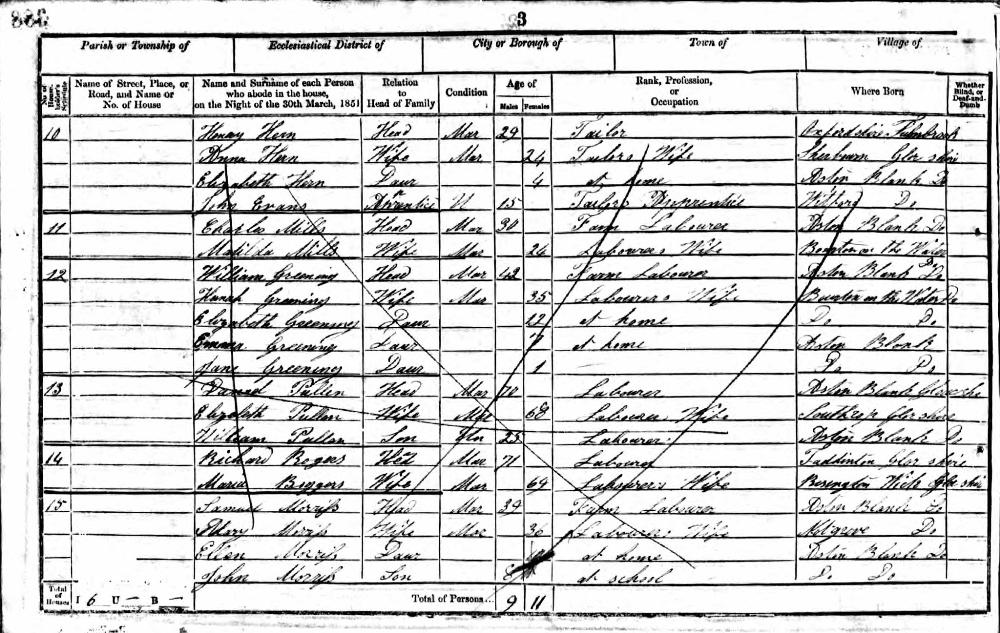 3
Parish or Township of Ecclesiastical District of City or Borough of Town of Village of
No. of House-holder's Schedule Name of Street, Place, or Road, and Name or No. of House Name and Surname of each Person who abode in the house, on the Night of the 30th March, 1851 Relation to Head of Family Condition Age of Males Females Rank, Profession, or Occupation Where Born Whether Blind, or Deaf-and-Dumb
10 Henry Hern Head Mar 29 Tailor Oxfordshire
Anna Hern Wife Mar 24 Tailors Wife Sherburn Glos shire
Elizabeth Hern Daur 4 at home Aston Blank Do
John Evans Aprentice U 15 Tailors Apprentice Do
11 Charles Mills Head Mar 30 Farm Labourer Aston Blank Do
Matilda Mills Wife Mar 24 Labourers Wife Bourton on the Water
12 William Greening Head Mar 42 Farm Labourer Aston Blank Do
Hanah Greening Wife Mar 35 Labourers Wife Bourton on the Water Do
Elizabeth Greening Daur 12 at home Do Do
Emma Greening Daur 7 at home Aston Blank
Jane Greening Daur 1 Do Do
13 Daniel Pullen Head Mar 70 Labourer Aston Blank
Elizabeth Pullen Wife Mar 68 Labourers Wife Southrop Glos shire
William Pullen Son Un 25 Labourer Aston Blank Do
14 Richard Rogers Hed Mar 71 Labourer Taddinton Glos shire
Maria Wife Mar 69 Labourers Wife Glos shire
15 Samuel Morriss Head Mar 39 Farm Labourer Aston Blank Do
Mary Morriss Wife Mar 36 Labourers Wife Notgrove Do
Ellen Morriss Daur at home Aston Blank Do
John Morriss Son at school Do Do
Total of Houses I 6 U — B — Total of Persons... 9 11